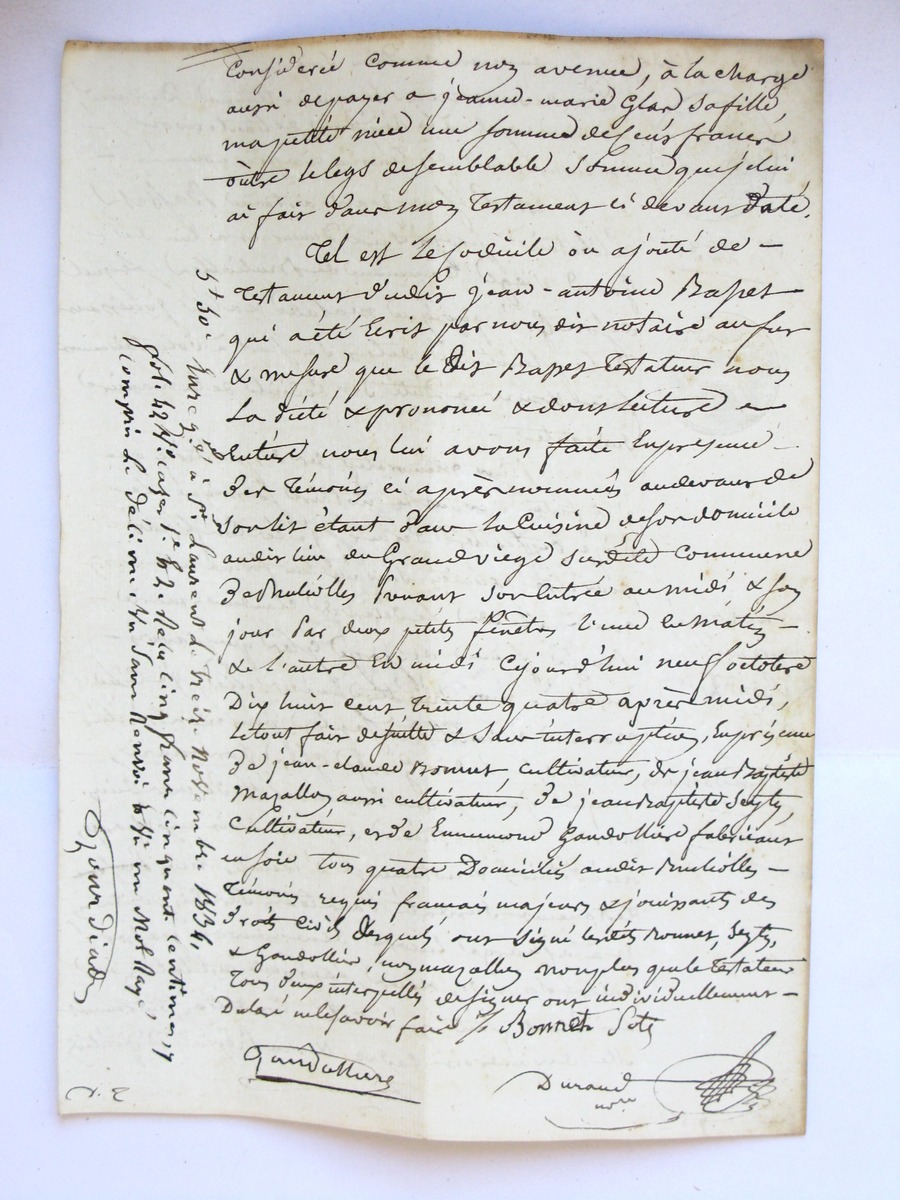 Considerée comme non avenue, à la charge
aussi depayer a jeanne-marie Glas safille,
mapetite niece une somme decens francs
outre lelegs desemblable somme quejelui
ai fait dans mon Testament ci devant daté.
Tel est Lecodicile ou ajouté de -
Testament dudit jean-antoine Basset
qui aété Ecrit par nous dit notaire aufur
& mesure que le dit Basset Testateur nous
La dicté & prononcé & dont Lecture -
Entiere nous Lui avons faite Enpresence -
des Témoins ci après nommés audevant de
son lit étant dans la Cuisine deson domicile
audit lieu du Grand viege susdite Commune
de Prenant son Entrée au midi & son
jour Par deux petites fenêtres l'une au matin -
& l'autre En midi Cejourd'hui neuf octobre
Dix huit cent trente quatre après midi,
Letout fait desuitte & sans interruption, Enprésence
de jean-claude Bonnet, cultivateur, de jean Baptiste
Mazallon aussi cultivateur, de jeanBaptiste Sety,
Cultivateur, et de Ennemond Gandolliere fabricant
en soie tous quatre Domiciliés audit
Témoins requis francais majeurs & jouissants des
droits Civils desquels ont signé lesdits Bonnet, Sety,
& Gandollier, non mazallon nonplus quele Testateur
Tous deux interpellés designer ont individuellement -
Declaré nelesavoir faire ./. Bonnet Sety
Gandolliere
Durand
nore
5f 50c Enregté à St Laurent Le treize Novembre 1834,
fol. 42 Vo cases 1e & 2e Reçu cinq francs cinquante centimes, y
compris Le décime. Un Sans Renvoi & Un mot Rayé,